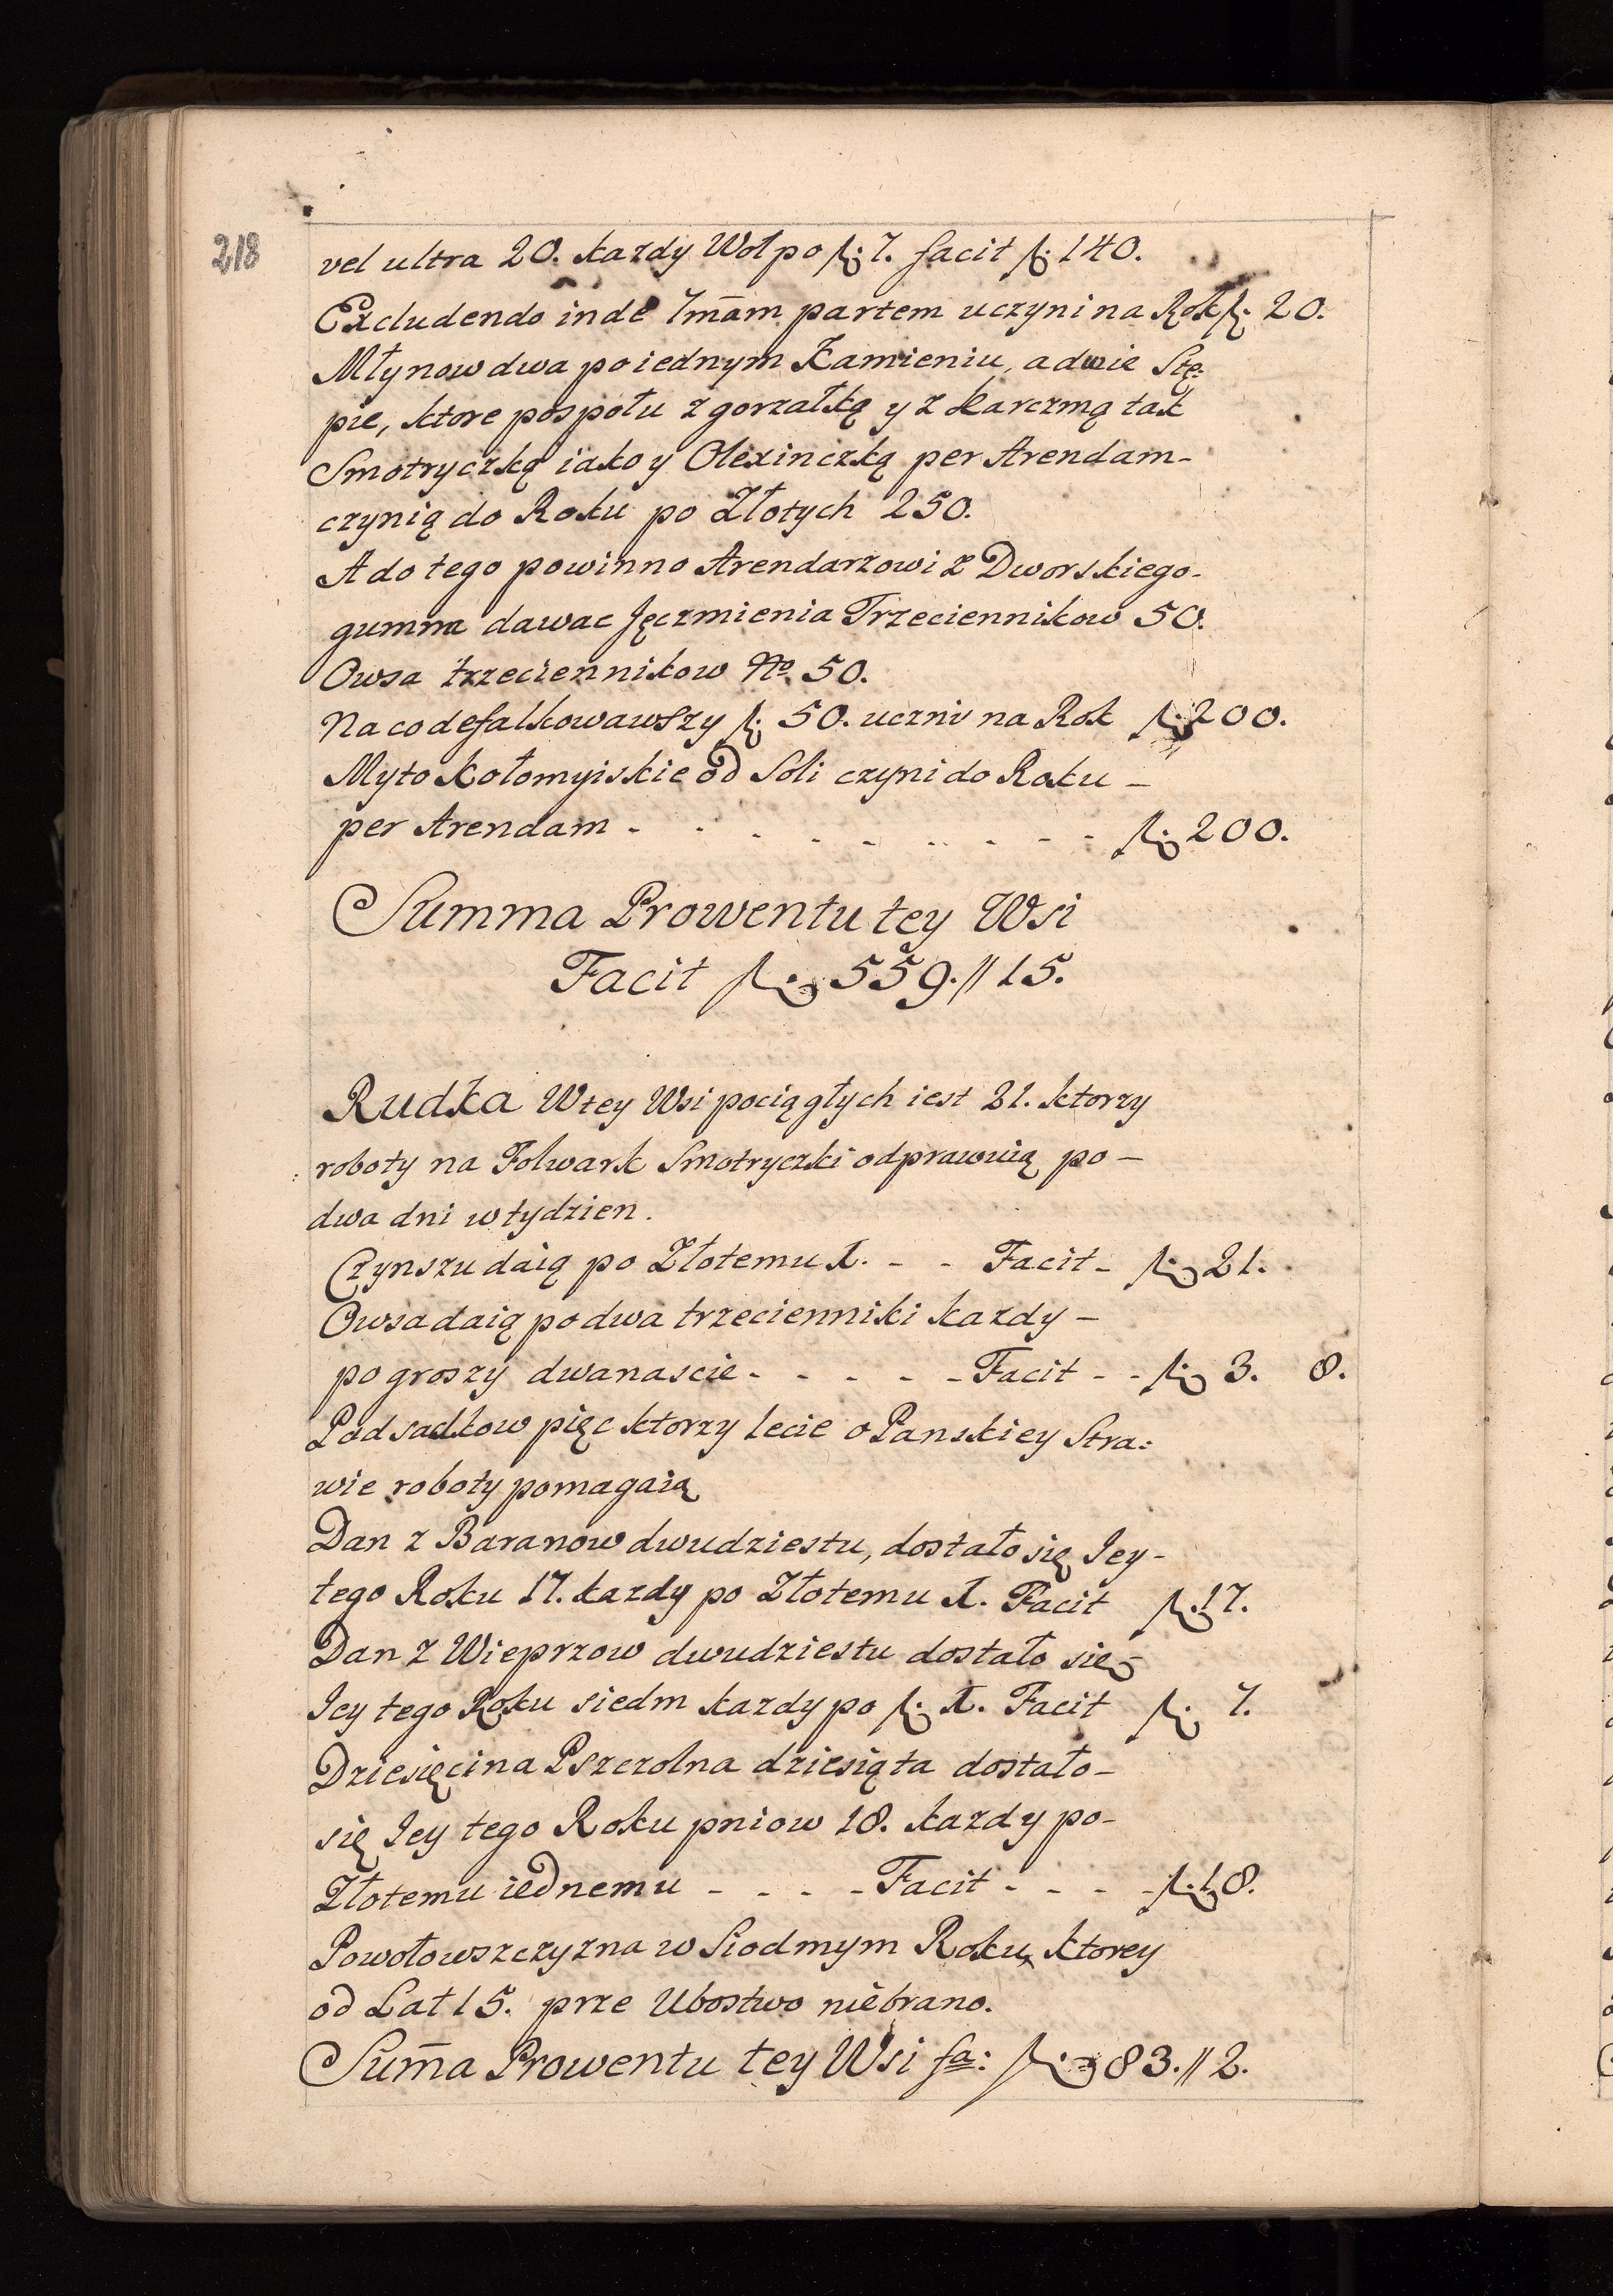 218
vel ultra 20. kazdy Woł po fl. 7. facit fl. 140.
Excludendo inde 7m̄am partem uczyni na Rok fl. 20.
Młynow dwa po iednym Kamieniu, a dwie Stę:
pie, ktore pospołu z gorzałką y z Karczmą tak
Smotryczką iako y Olexinczką per Arendam-
czynią do Roku po Złotych 250.
A do tego powinno Arendarzowi z Dworskiego-
gumna dawac Jęczmienia Trzeciennikow 50.
Owsa trzeciennikow No. 50.
Na co defalkowawszy fl. 50. uczni na Rok fl. 200.
Myto Kołomyiskie od Soli czyni do Roku -
per Arendam - - - - - - - - - fl. 200.
Summa Prowentu tey Wsi
Facit fl. 559.//15.
Rudka W tey Wsi pociągłych iest 21. ktorzy
roboty na Folwark Smotryczki odprawuią po -
dwa dni w tydzien.
Czynszu daią po Złotemu 1. - - Facit - fl. 21.
Owsa daią po dwa trzecienniki kazdy -
po groszy dwanascie - - - - - Facit - - fl. 3. 8.
Podsadkow pięc ktorzy lecie o Panskiey Stra:
wie roboty pomagaią
Dan z Baranow dwudziestu, dostało się Jey-
tego Roku 17. kazdy po Złotemu 1. Facit fl. 17.
Dan z Wieprzow dwudziestu dostało się-
Jey tego Roku siedm kazdy po fl. 1. Facit fl. 7.
Dziesięcina Pszczolna dziesiąta dostało-
się Jey tego Roku pniow 18. kazdy po-
Złotemu iednemu - - - - Facit - - - - fl. 18.
Powołowszczyzna w Siodmym Roku, ktorey
od Lat 15. prze Ubostwo niebrano.
Sum̄a Prowentu tey Wsi fa: fl. 83.//2.